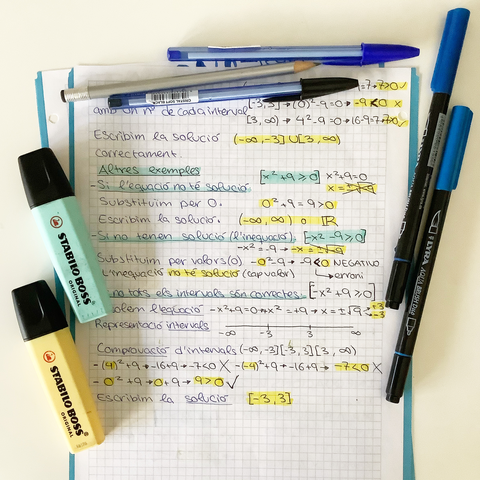 =7→7>0✓
amb un nº de cada interval [-3,3]→(0)²-9=0→-9<0 x
[3,∞)→4²-9→16-9=7→7>0✓
Escribim la solució (-∞,-3]U[3,∞)
correctament.
Altres exemples [x²+9⩾0] x²+9=0
-Si l'equació no té solució x=±√-9
Substituim per 0. 0²+9=9>0
Escribim la solució. (-∞,∞) o ℝ
-Si no tenen solució (l'inequació). [-x²-9⩾0]
-x²=-9→-x=±√-9
Substituim per valors(0) -0²-9→-9<0 NEGATIU
L'inequació no té solució (cap valor) erroni
no tots els intervals són correctes. [-x²+9⩾0]
l'equació -x²+9=0→+x²=+9→x=±√9 +3 -3
Representació intervals -∞ -3 3 ∞
Comprovació d'intervals (-∞,-3][-3,3][3,∞)
-(4)²+9→-16+9→-7<0 X -(-4)²+9→-16+9→-7<0 X
-0²+9→0+9→9>0 ✓
Escribim la solució [-3,3]
STABILO BOSS
ORIGINAL
STABILO BOSS
ORIGINAL
LYRA